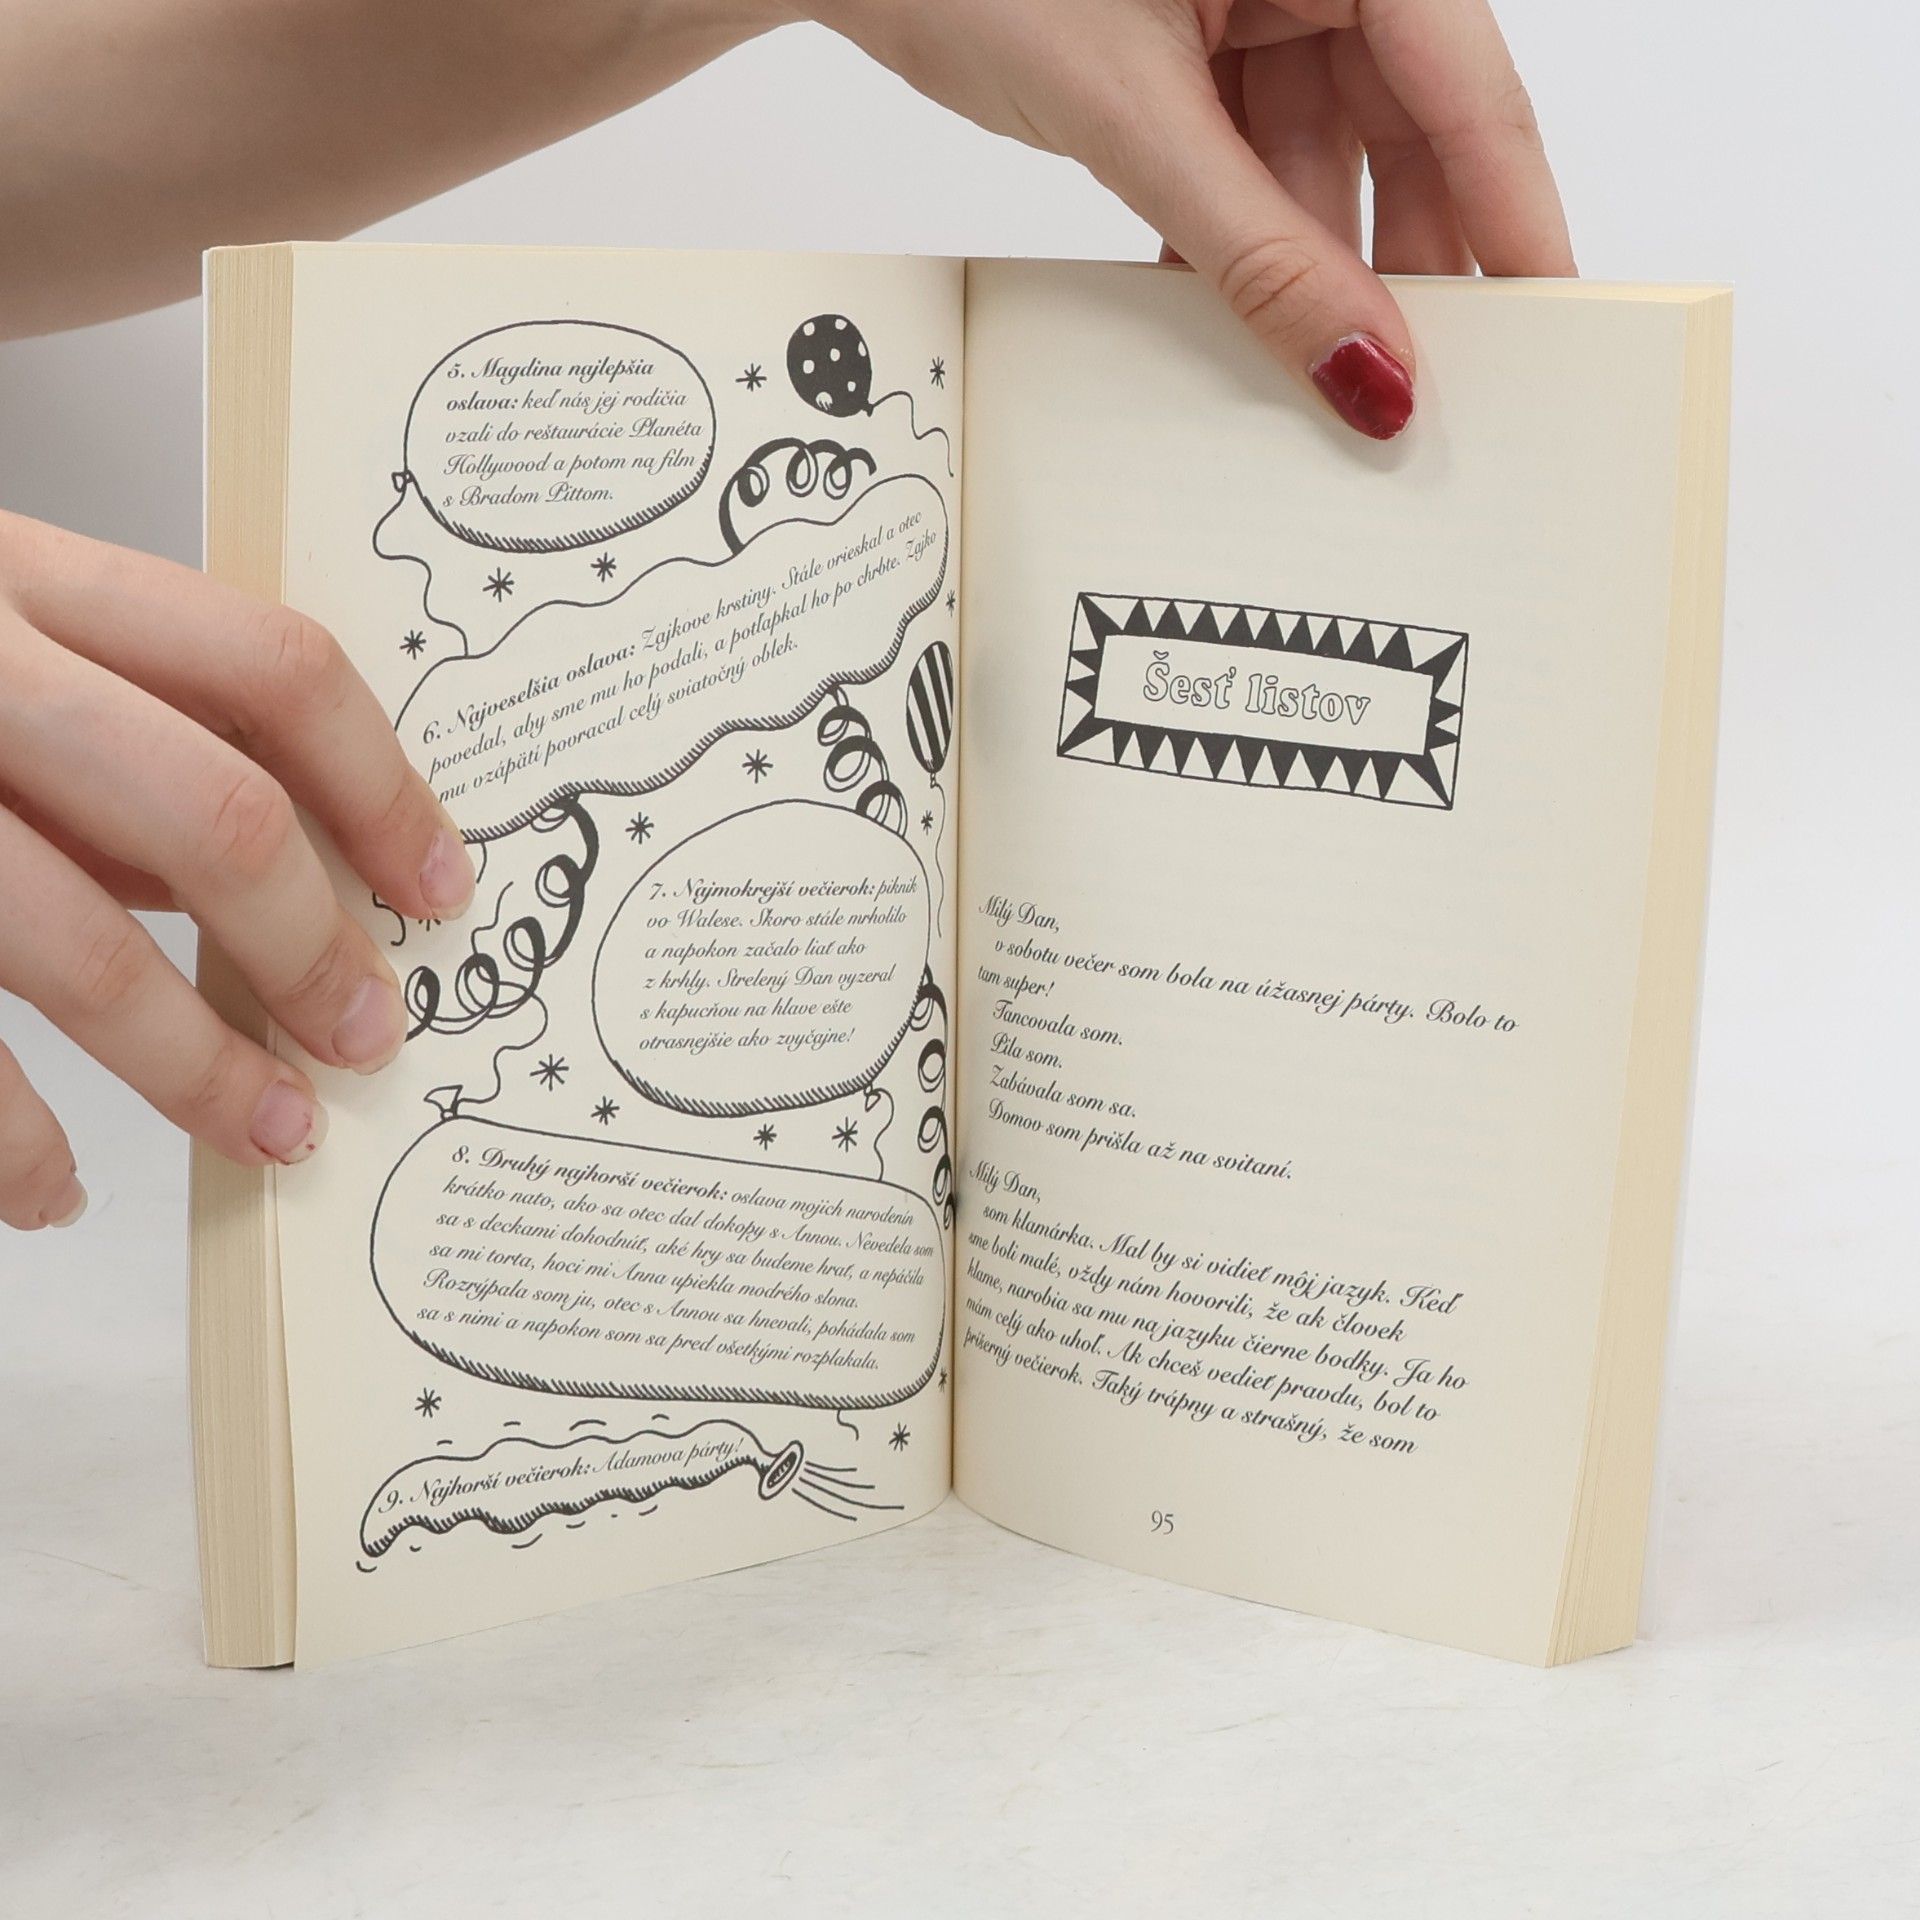 5. Magdina najlepšia
oslava: keď nás jej rodičia
vzali do reštaurácie Planéta
Hollywood a potom na film
s Bradom Pittom.
6. Najveselšia oslava: Zajkove krstiny. Stále vrieskal a otec
povedal, aby sme mu ho podali, a potľapkal ho po chrbte. Zajko
mu vzápätí povracal celý sviatočný oblek.
7. Najmokrejší večierok: piknik
vo Walese. Skoro stále mrholilo
a napokon začalo liať ako
z krhly. Strelený Dan vyzeral
s kapucňou na hlave ešte
otrasnejšie ako zvyčajne!
8. Druhý najhorší večierok: oslava mojich narodenín
krátko nato, ako sa otec dal dokopy s Annou. Nevedela som
sa s deckami dohodnúť, aké hry sa budeme hrať, a nepáčila
sa mi torta, hoci mi Anna upiekla modrého slona.
Rozrýpala som ju, otec s Annou sa hnevali, pohádala som
sa s nimi a napokon som sa pred všetkými rozplakala.
9. Najhorší večierok: Adamova párty!
Šesť listov
Milý Dan,
v sobotu večer som bola na úžasnej párty. Bolo to
tam super!
Tancovala som.
Pila som.
Zabávala som sa.
Domov som prišla až na svitaní.
Milý Dan,
som klamárka. Mal by si vidieť môj jazyk. Keď
sme boli malé, vždy nám hovorili, že ak človek
klame, narobia sa mu na jazyku čierne bodky. Ja ho
mám celý ako uhoľ. Ak chceš vedieť pravdu, bol to
príšerný večierok. Taký trápny a strašný, že som
95